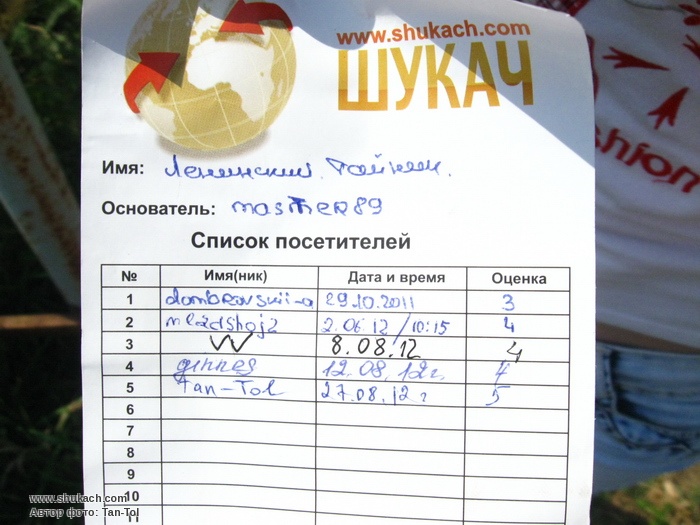 www.shukach.com
ШУКАЧ
Имя: Ленинский тайник.
Основатель: mastter89
Список посетителей
№ Имя(ник) Дата и время Оценка
1 dombrovskii-a 29.10.2011 3
2 mladshoj2 2.06.12/10:15 4
3 W 8.08.12 4
4 ginnes 12.08.12г. 4
5 Tan-Tol 27.08.12г 5
6
7
8
9
10
11
fashion
www.shukach.com
Автор фото: Tan-Tol